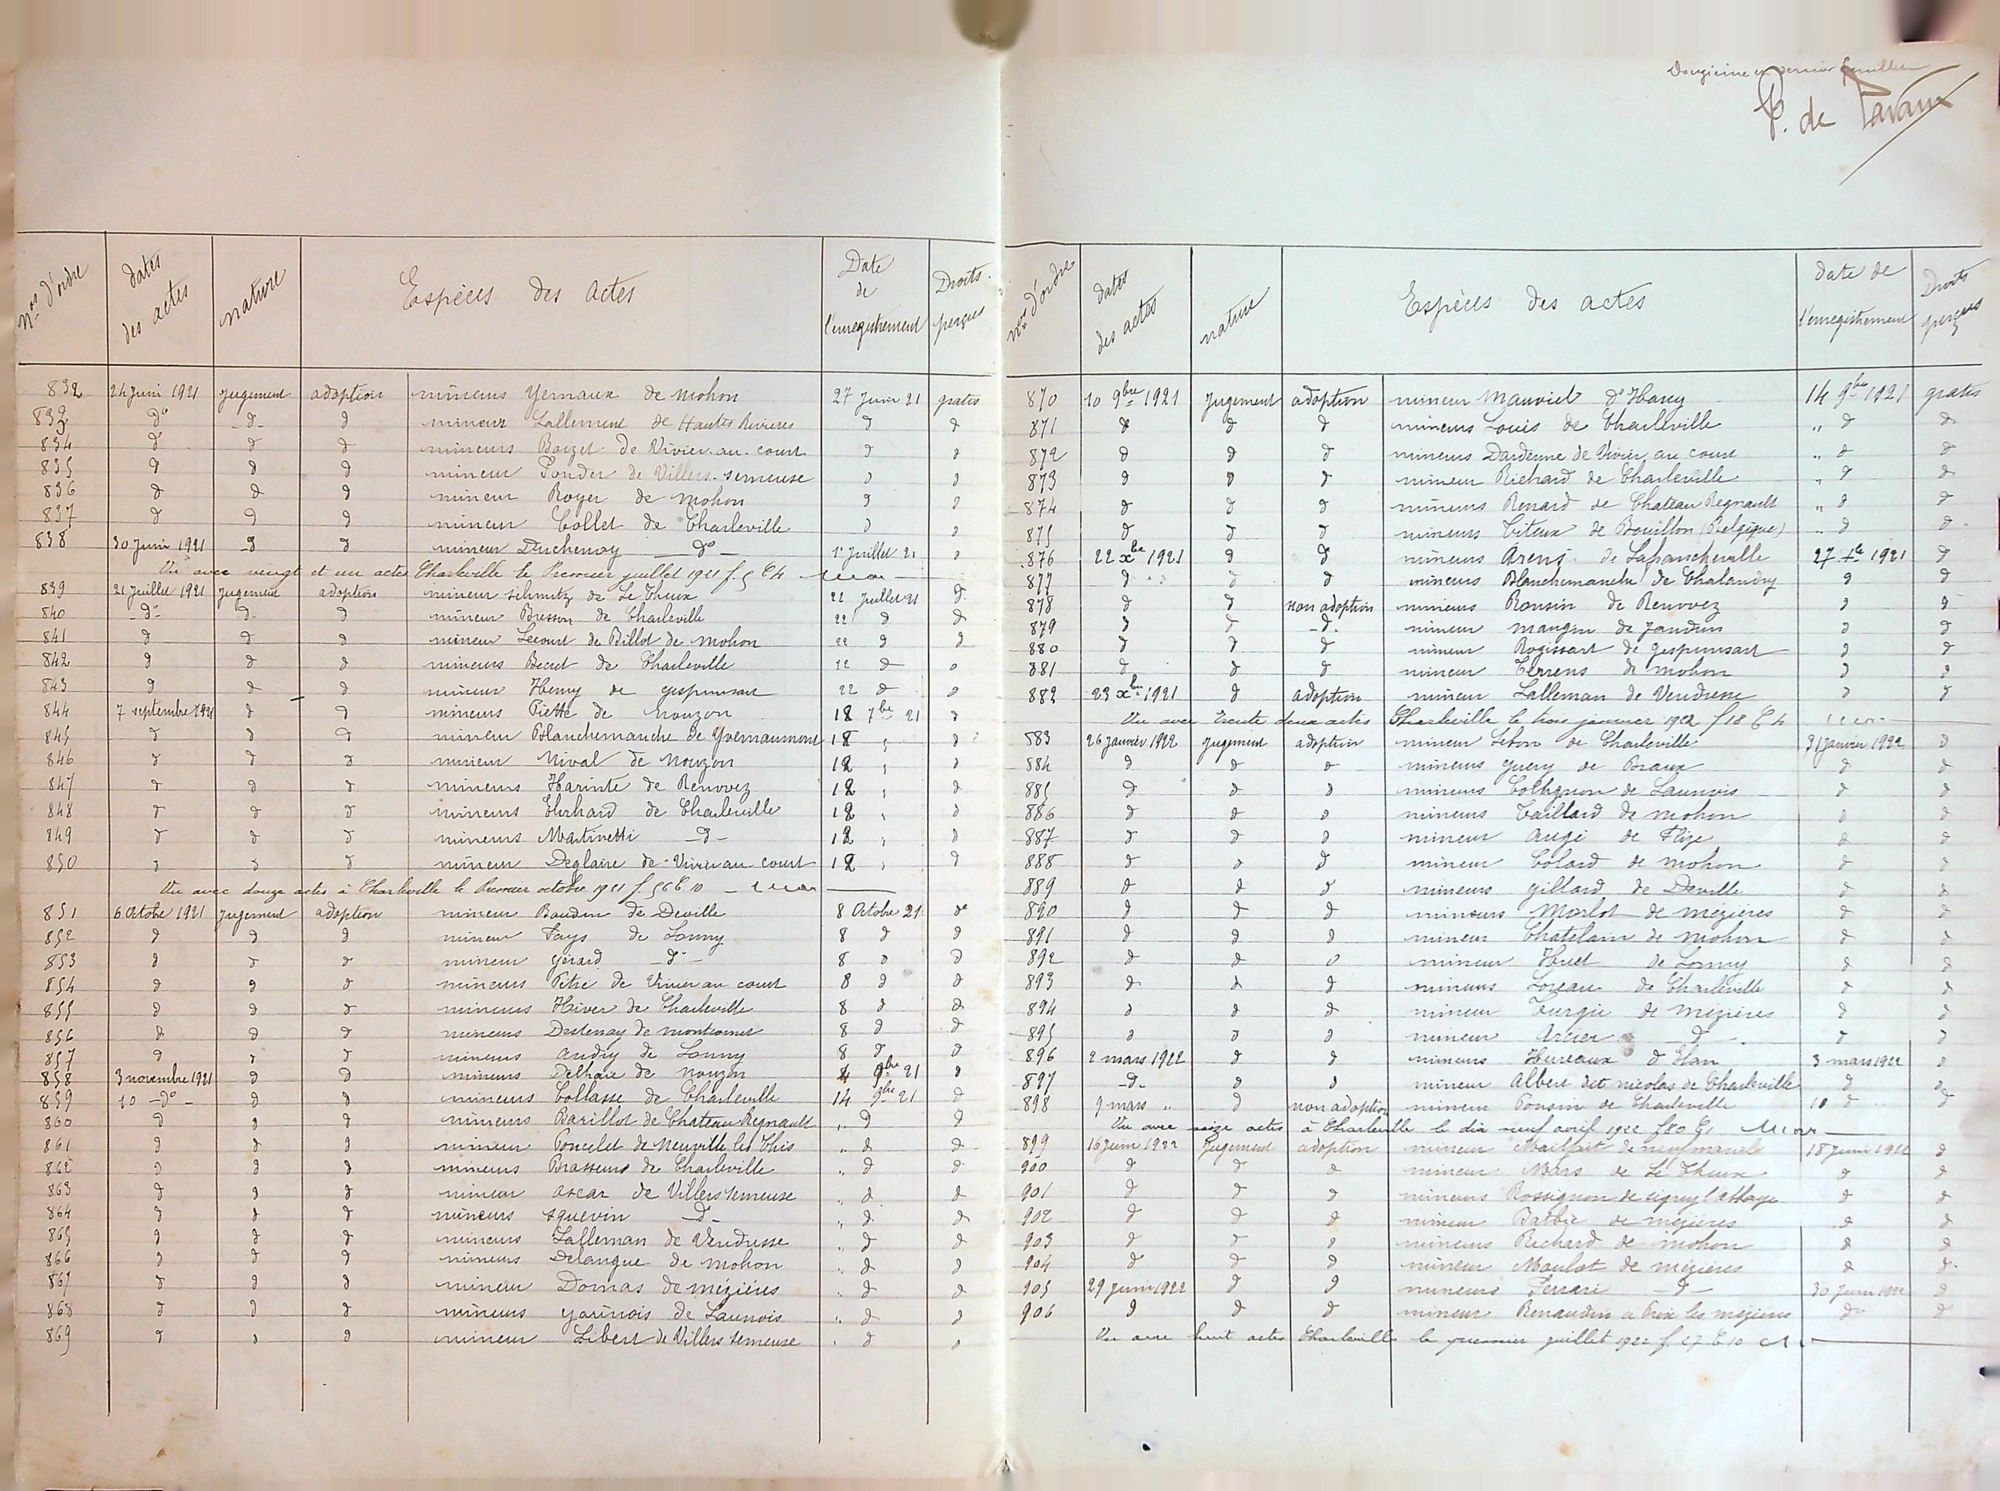 Douzième et dernier feuillet
P. de Tavaux
nos d'ordre | dates des actes | nature | Espèces des actes | Date de l'enregistrement | Droits perçus
832 24 juin 1921 jugement adoption mineurs Yernaux de Mohon 27 juin 21 gratis
833 do d d mineur Lallement de Hautes Rivières d d
834 d d d mineurs Boizet de Vivier au court d d
835 d d d mineur Ponder de Villers-semeuse d d
836 d d d mineur Royer de Mohon d d
837 d d d mineur Collet de Charleville d d
838 30 juin 1921 d d mineur Duchenoy do 1er juillet 21 d
Vu avec vingt et un actes Charleville le Premier juillet 1921 f. 5 C 4
839 21 juillet 1921 jugement adoption mineur Schmitz de Le Theux 22 juillet 21 d
840 do d d mineur Bresson de Charleville 22 d d
841 d d d mineur Lecourt de Billot de Mohon 22 d d
842 d d d mineurs Becret de Charleville 22 d d
843 d d d mineur Henry de gespunsart 22 d d
844 7 septembre 1921 d d mineurs Piette de Nouzon 12 7bre 21 d
845 d d d mineur Blanchemanche de Yvernaumont 12 " d
846 d d d mineur Nival de Nouzon 12 " d
847 d d d mineurs Harinte de Renwez 12 " d
848 d d d mineurs Eberhard de Charleville 12 " d
849 d d d mineurs Martinetti d 12 " d
850 d d d mineur Deglaire de Vivier au court 12 " d
Vu avec douze actes à Charleville le Premier octobre 1921 f. 56 C 10
851 6 Octobre 1921 jugement adoption mineur Baudin de Deville 8 Octobre 21 do
852 d d d mineur Fays de Lonny 8 d d
853 d d d mineur Gérard do 8 d d
854 d d d mineurs Pêtre de Vivier au court 8 d d
855 d d d mineurs Hiver de Charleville 8 d d
856 d d d mineurs Destenay de Montcornet 8 d d
857 d d d mineurs Andry de Lonny 8 d d
858 3 novembre 1921 d d mineurs Delhaie de Nouzon 4 9bre 21 d
859 10 do d d mineurs Collasse de Charleville 14 9bre 21 d
860 d d d mineurs Barillot de Chateau Regnault " d d
861 d d d mineur Poncelet de Neuville les This " d d
862 d d d mineurs Brasseur de Charleville " d d
863 d d d mineur Ascar de Villers semeuse " d d
864 d d d mineurs Squevin d " d d
865 d d d mineurs Lalleman de Vendresse " d d
866 d d d mineurs Delangue de Mohon " d d
867 d d d mineur Domas de mézières " d d
868 d d d mineurs Garinois de Launois " d d
869 d d d mineur Libert de Villers semeuse " d d
nos d'ordre | dates des actes | nature | Espèces des actes | date de l'enregistrement | Droits perçus
870 10 9bre 1921 jugement adoption mineur Mauviel d'Harcy 14 9bre 1921 gratis
871 d d d mineurs Louis de Charleville " d d
872 d d d mineurs Dardenne de Vivier au court " d d
873 d d d mineur Richard de Charleville " d d
874 d d d mineurs Renard de Chateau Regnault " d d
875 d d d mineurs Citeux de Bouillon (Belgique) " d d
876 22 xbre 1921 d d mineurs Arens de Lafrancheville 27 xbre 1921 d
877 d d d mineurs Blanchemanche de Chalandry d d
878 d d non adoption mineurs Ronsin de Renwez d d
879 d d d mineur Mangin de Jandun d d
880 d d d mineur Rogissart de gespunsart d d
881 d d d mineur Terrens de Mohon d d
882 23 xbre 1921 d adoption mineur Lalleman de Vendresse d d
Vu avec trente deux actes Charleville le trois janvier 1922 f 18 C 4
583 26 janvier 1922 jugement adoption mineur Lebon de Charleville 31 janvier 1922 d
884 d d d mineurs Guery de Braux d d
885 d d d mineurs Collignon de Launois d d
886 d d d mineurs Taillard de Mohon d d
887 d d d mineur Augé de Flize d d
888 d d d mineur Colard de Mohon d d
889 d d d mineurs Gillard de Deville d d
890 d d d mineurs Morlot de Mézières d d
891 d d d mineur Chatelain de Mohon d d
892 d d d mineur Huet de Lonny d d
893 d d d mineurs Loreau de Charleville d d
894 d d d mineur Turgie de Mézières d d
895 d d d mineur Arcier d d d
896 2 mars 1922 d d mineurs Hureaux d'Elan 3 mars 1922 d
897 d d d mineur Albert dit Nicolas de Charleville d d
898 9 mars " d non adoption mineur Ponsin de Charleville 10 d d
Vu avec seize actes à Charleville le dix neuf avril 1922
899 16 juin 1922 jugement adoption mineur Malfait de 18 juin 1922 d
900 d d d mineur Mars de Le Theux d d
901 d d d mineurs Rossignon de signy l'abbaye d d
902 d d d mineur Barbie de Mézières d d
903 d d d mineurs Richard de Mohon d d
904 d d d mineur Moulot de Mézières d d
905 29 juin 1922 d d mineurs Ferrari d 30 juin 1922 d
906 d d d mineur Renaudin à Prix les Mézières do d
Vu avec huit actes Charleville le premier juillet 1922 f. 27 C 10